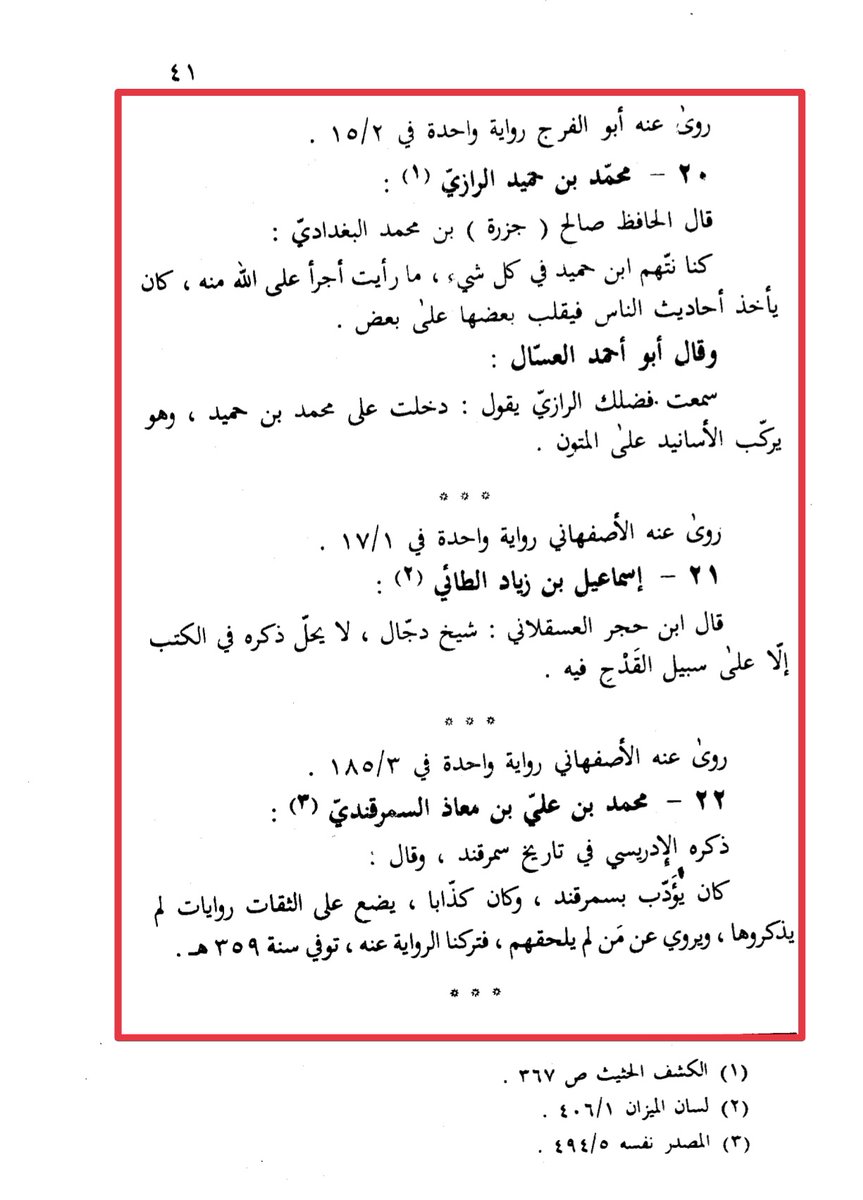 ٤١
روىٰ عنه أبو الفرج رواية واحدة في ١٥/٢ .
٢٠ - محمّد بن حميد الرازيّ (١) :
قال الحافظ صالح ( جزرة ) بن محمد البغداديّ :
كنا نتّهم ابن حميد في كل شيء ، ما رأيت أجرأ على الله منه ، كان
يأخذ أحاديث الناس فيقلب بعضها علىٰ بعض .
وقال أبو أحمد العسّال :
سمعت فضلك الرازيّ يقول : دخلت على محمد بن حميد ، وهو
يركّب الأسانيد علىٰ المتون .
* * *
روىٰ عنه الأصفهاني رواية واحدة في ١٧/١ .
٢١ - إسماعيل بن زياد الطائي (٢) :
قال ابن حجر العسقلاني : شيخ دجّال ، لا يحلّ ذكره في الكتب
إلّا علىٰ سبيل القَدْحِ فيه .
* * *
روىٰ عنه الأصفهاني رواية واحدة في ١٨٥/٣ .
٢٢ - محمد بن عليّ بن معاذ السمرقنديّ (٣) :
ذكره الإدريسي في تاريخ سمرقند ، وقال :
كان يُؤَدّب بسمرقند ، وكان كذّابا ، يضع على الثقات روايات لم
يذكروها ، ويروي عن مَن لم يلحقهم ، فتركنا الرواية عنه ، توفي سنة ٣٥٩ هـ .
* * *
(١) الكشف الحثيث ص ٣٦٧ .
(٢) لسان الميزان ٤٠٦/١ .
(٣) المصدر نفسه ٤٩٤/٥ .